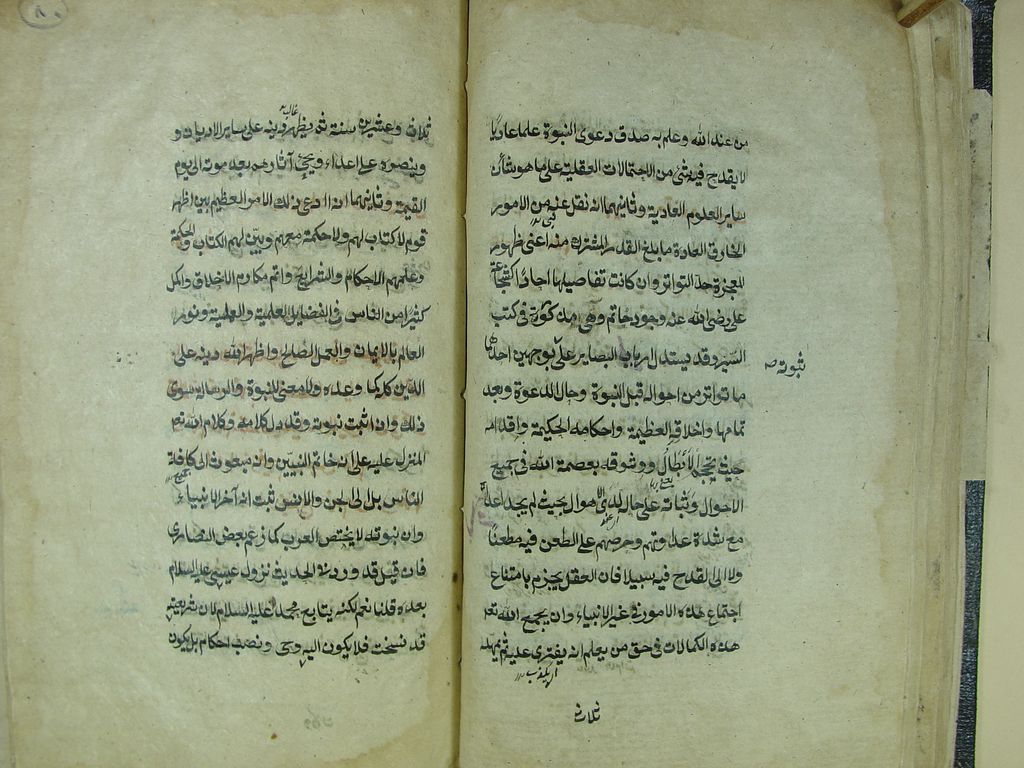 من عند الله وعلم به صدق دعوى النبوة علما عاديا
لا يقدح فيه شئ من الاحتمالات العقلية على ما هو شان
ساير العلوم العادية وثانيهما انه نقل عنه من الامور
الخارق العادة ما بلغ القدر المشترك منه اعنى ظهور
المعجزة حد التواتر وان كانت تفاصيلها احادا كشجاعة
على رضى الله عنه وجود حاتم وهى مذكورة فى كتب
السير وقد يستدل ارباب البصاير على بوجهين احدهما
نبوته صح
ما تواتر من احواله قبل النبوة وحال الدعوة وبعد
تمامها واخلاقه العظيمة واحكامه الحكيمة واقدامه
حيث تحجم الابطال ووثوقه بعصمة الله فى جميع
الاحوال وثباته على حاله لدى الاهوال بحيث لم يجد اعداؤه
مع شدة عداوتهم وحرصهم على الطعن فيه مطعنا
ولا الى القدح فيه سبيلا فان العقل يجزم بامتناع
اجتماع هذه الامور فى غير الانبياء وان يجمع الله تعم
هذه الكمالات فى حق من يعلم انه يفترى عليه ثم يمهله
اى يكذب
ثلاثا
٨٠
غالب
ثلاث وعشرين سنة ثم يظهر دينه على ساير الاديان و
وينصره على اعداءه ويحيى آثارهم بعد موته الى يوم
القيمة وثانيهما انه ادعى ذلك الامر العظيم بين اظهر
قوم لا كتاب لهم ولا حكمة معهم وبين لهم الكتاب والحكمة
وعلمهم الاحكام والشرايع واتم مكارم الاخلاق واكمل
كثيرا من الناس فى الفضايل العلمية والعملية ونور
العالم بالايمان والعمل الصالح واظهر الله دينه على
الدين كله كما وعده ولا معنى للنبوة والرسالة سوى
ذلك وان اثبت نبوته وقد دل كلامه وكلام الله تعم
المنزل عليه على انه خاتم النبيين وانه مبعوث الى كافة
الناس بل الى الجن والانس ثبت انه آخر الانبياء
وان نبوته لا يختص العرب كما زعم بعض النصارى
فان قيل قد ورد فى الحديث نزول عيسى عليه السلام
بعده قلنا نعم لكنه يتابع محمدا عليه السلام لان شريعته
قد نسخت فلا يكون اليه وحى ونصب احكام بل يكون